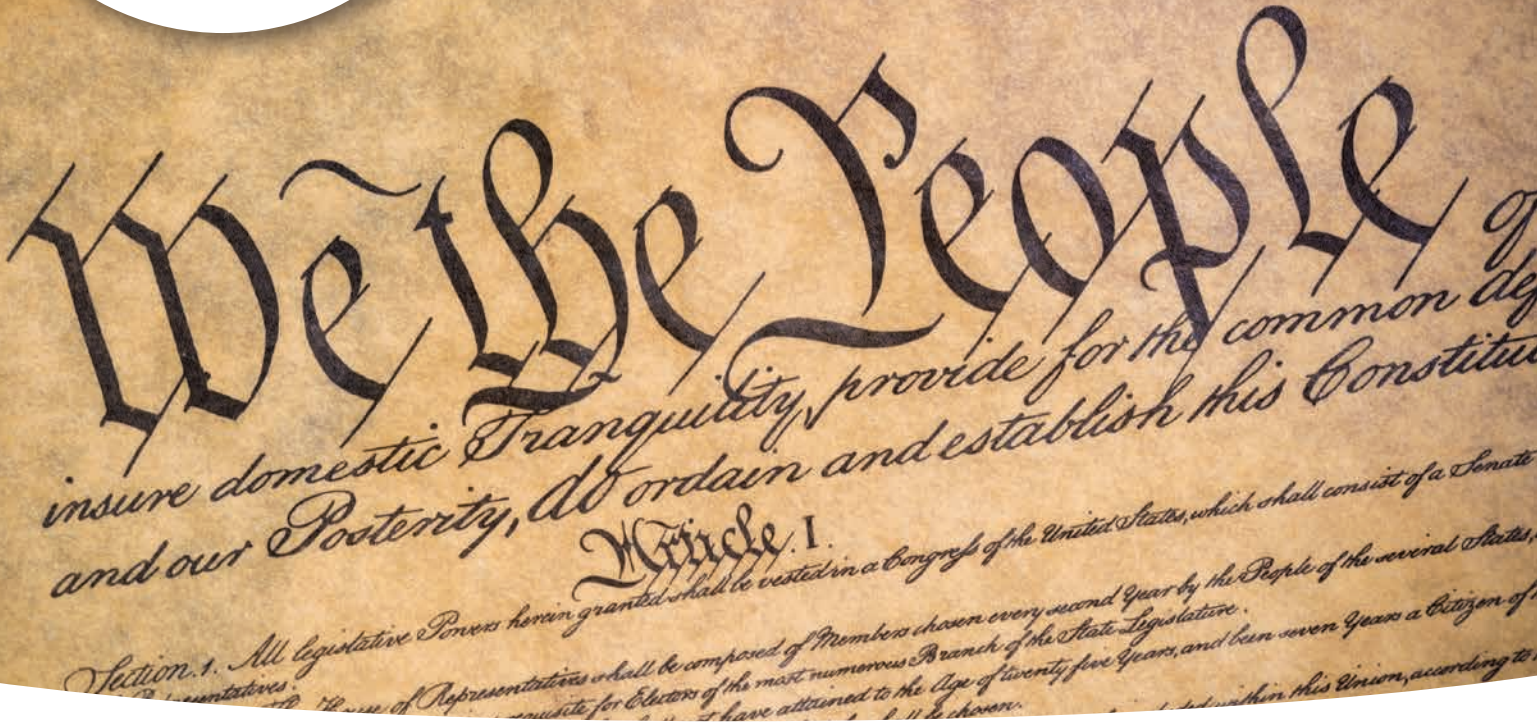 We the People of
insure domestic Tranquility, provide for the common def
and our Posterity, do ordain and establish this Constitu
Article. I.
Section. 1. All legislative Powers herein granted shall be vested in a Congress of the United States, which shall consist of a Senate
Representatives.
House of Representatives shall be composed of Members chosen every second Year by the People of the several States,
requisite for Electors of the most numerous Branch of the State Legislature.
have attained to the Age of twenty five Years, and been seven Years a Citizen of
shall be chosen.
within this Union, according to